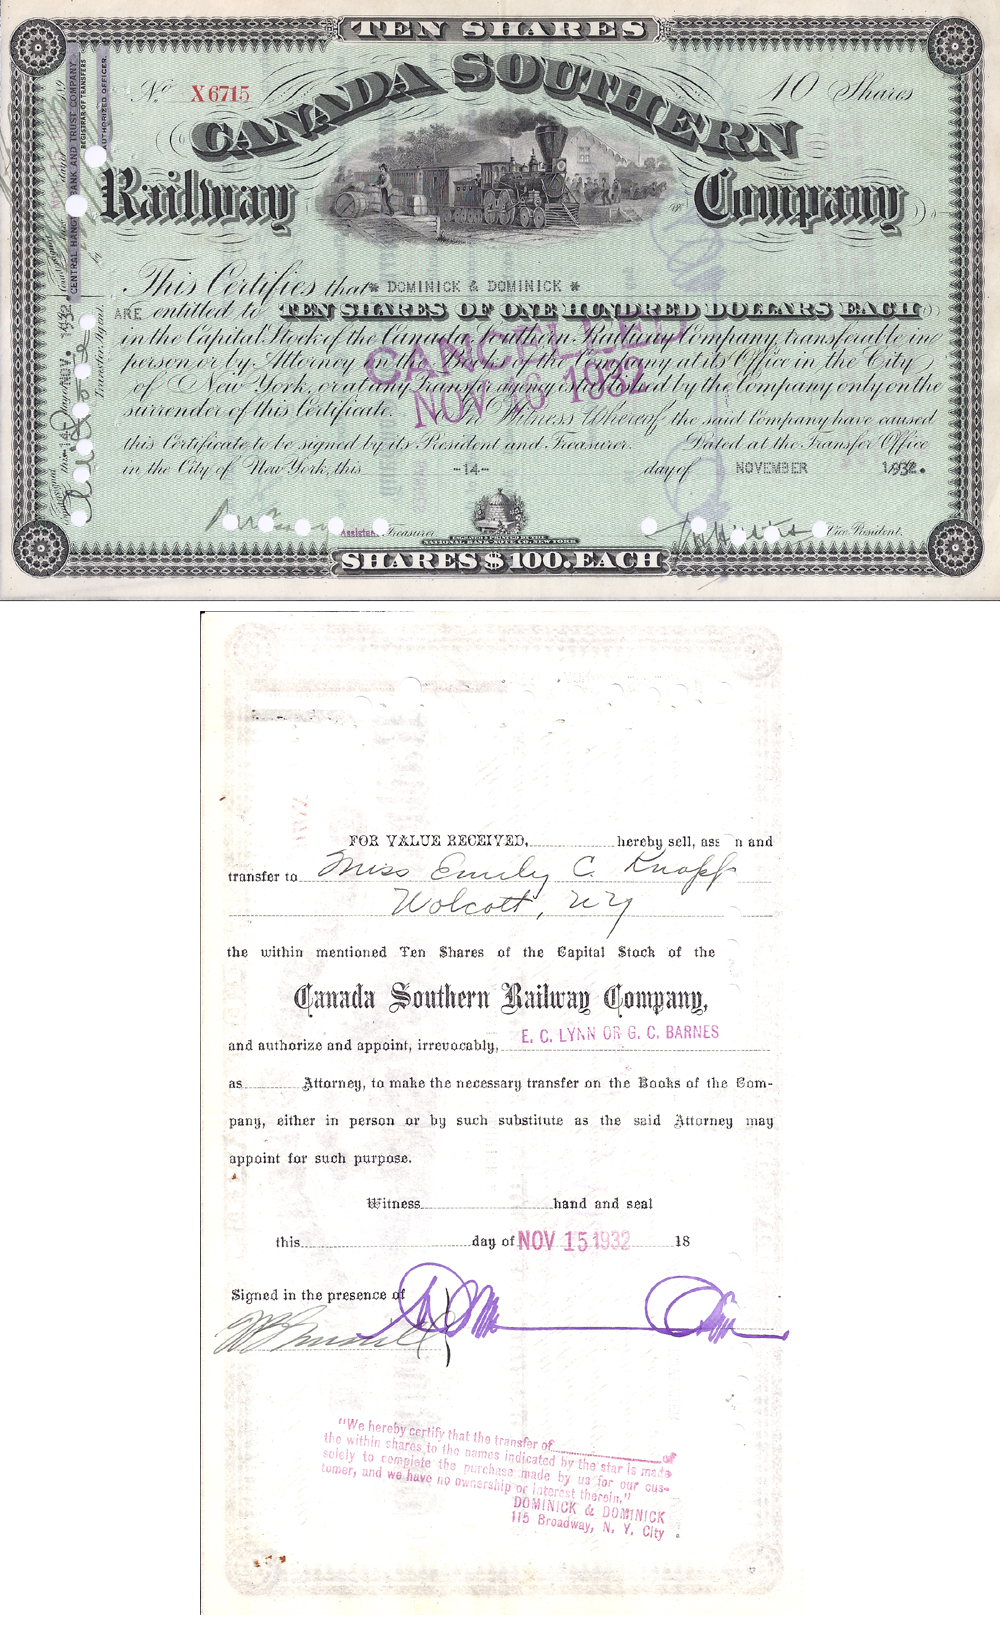 TEN SHARES
No. X6715
10 Shares
CANADA SOUTHERN
Railway Company
This Certifies that * DOMINICK & DOMINICK *
ARE entitled to TEN SHARES OF ONE HUNDRED DOLLARS EACH
in the Capital Stock of the Canada Southern Railway Company, transferable in
person or by Attorney on the Books of the Company at its Office in the City
of New York, or at any Transfer Agency established by the Company only on the
surrender of this Certificate. In Witness Whereof the said Company have caused
this Certificate to be signed by its President and Treasurer. Dated at the Transfer Office
in the City of New York, this -14- day of NOVEMBER 1932.
CANCELLED
NOV 16 1932
Assistant Treasurer
Vice President.
ENGRAVED & PRINTED BY THE
NATIONAL BANK-NOTE CO. NEW YORK
SHARES $100. EACH
CENTRAL HANOVER BANK AND TRUST COMPANY
REGISTRAR OF TRANSFERS
by AUTHORIZED OFFICER.
Countersigned
this 14 day of NOV. 1932
Transfer Agent.
FOR VALUE RECEIVED, hereby sell, ass n and
transfer to Miss Emily C. Knapp
Wolcott, NY
the within mentioned Ten Shares of the Capital Stock of the
Canada Southern Railway Company,
and authorize and appoint, irrevocably, E. C. LYNN OR G. C. BARNES
as Attorney, to make the necessary transfer on the Books of the Com-
pany, either in person or by such substitute as the said Attorney may
appoint for such purpose.
Witness hand and seal
this day of NOV 15 1932 18
Signed in the presence of
"We hereby certify that the transfer of of
the within shares to the names indicated by the star is made
solely to complete the purchase made by us for our cus-
tomer, and we have no ownership or interest therein."
DOMINICK & DOMINICK
115 Broadway, N. Y. City